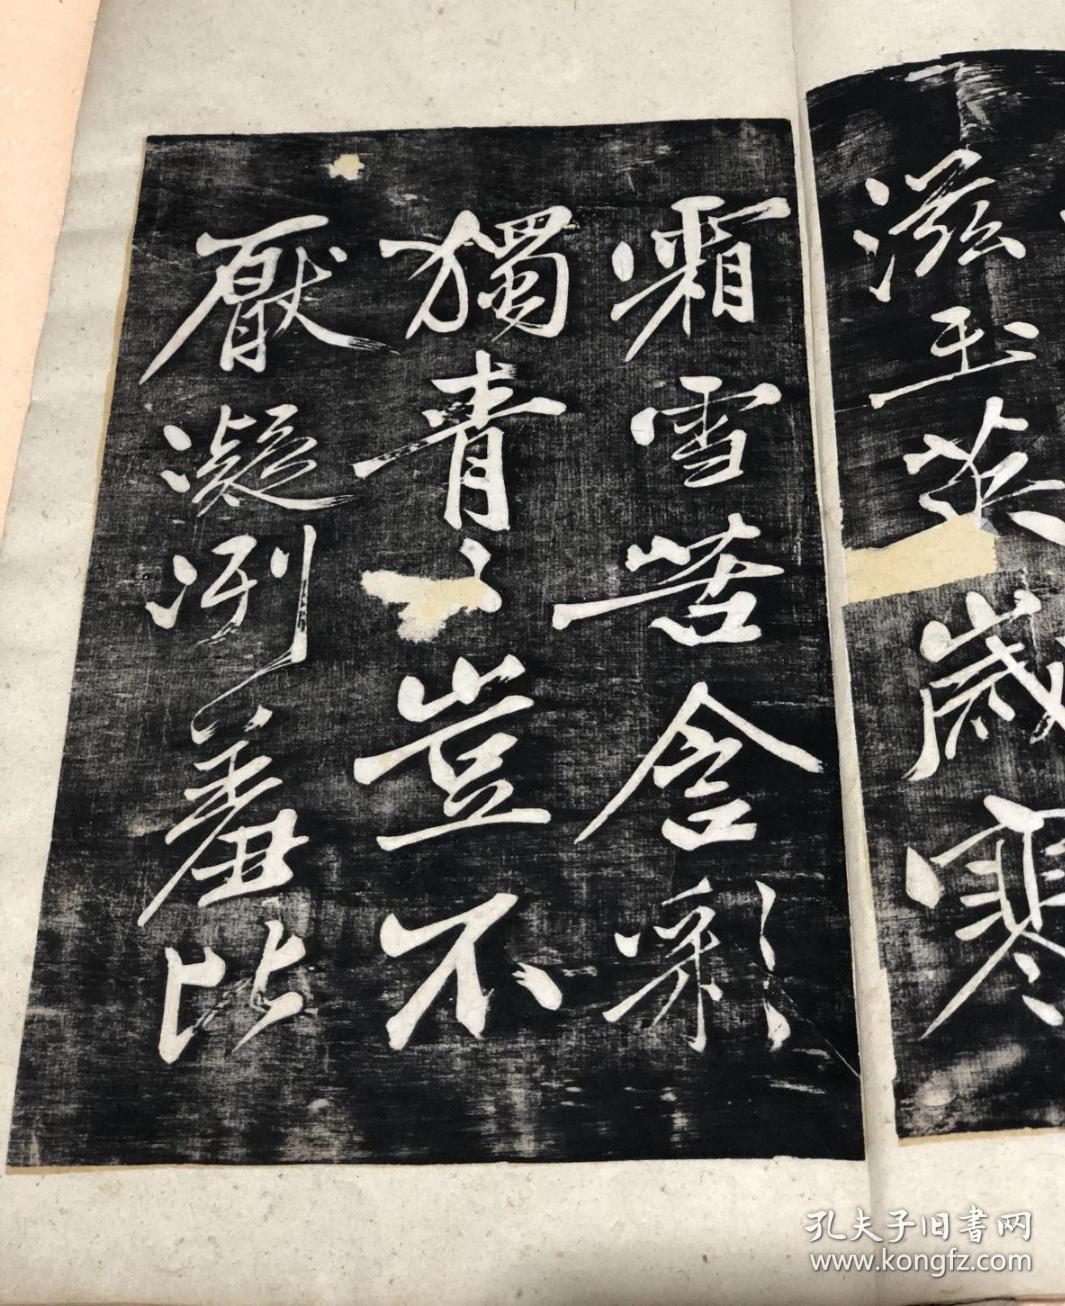 滋玉英歲寒
霜雪苦含彩
獨青〻豈不
厭凝冽羞比
孔夫子旧書网
www.kongfz.com